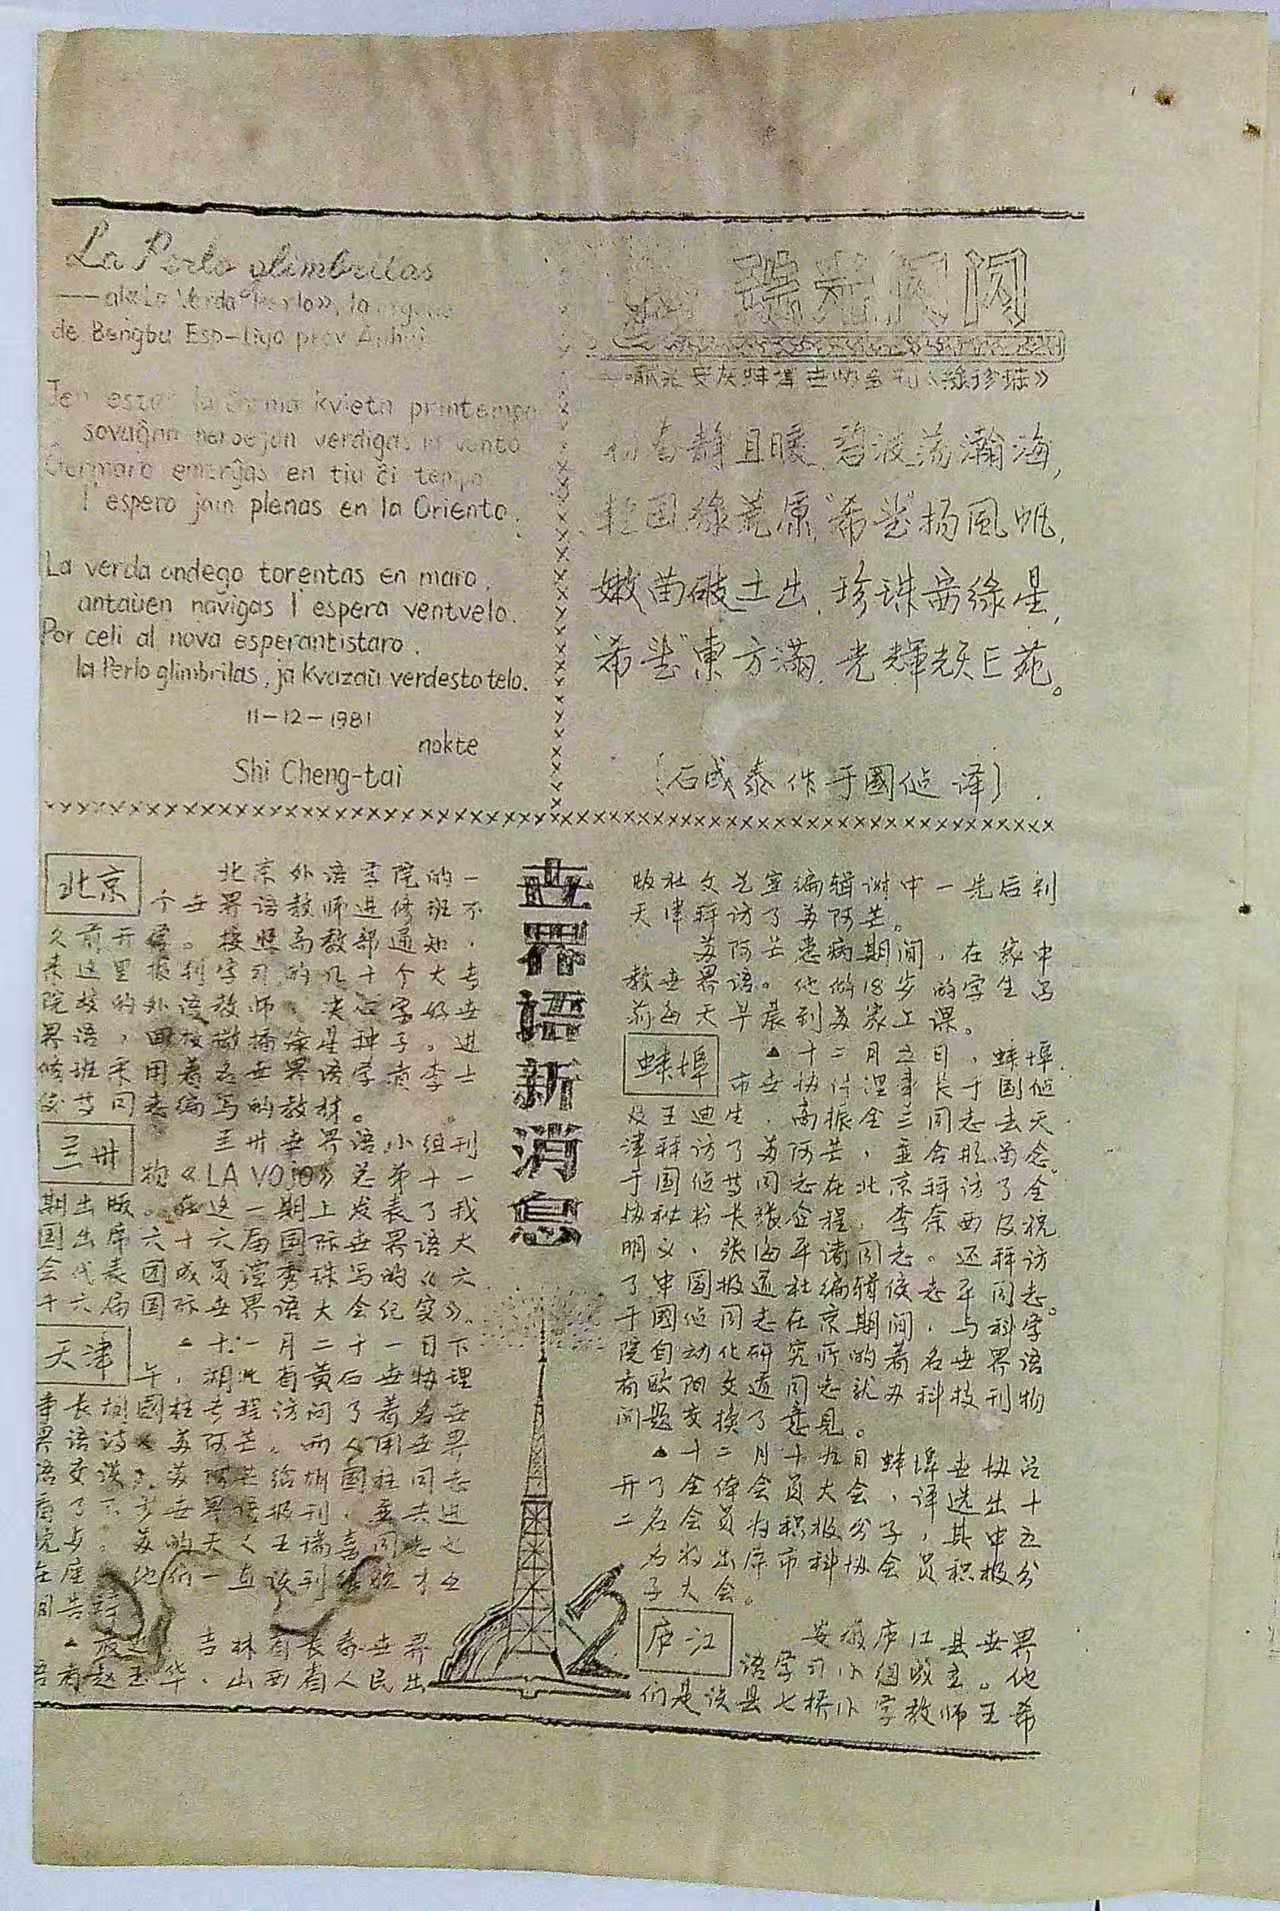 La Perlo glimbrilas
—— al «La Verda Perlo», la organo
de Bengbu Esp-ligo prov Anhui
Jen estas la ĉarma kvieta printempo
sovaĝan herbejon verdigas la vento
Ĝermaro emerĝas en tiu ĉi tempo
l' espero jam plenas en la Oriento.
La verda ondego torentas en maro,
antaŭen navigas l' espera ventvelo.
Por celi al nova esperantistaro,
la Perlo glimbrilas, ja kvazaŭ verdesto telo.
11-12-1981
nokte
Shi Cheng-tai
瑞光闪闪
《绿珍珠》
静且暖，碧波荡瀚海，
绿荒原，“希望”扬風帆，
嫩苗破土出，珍珠要綠星，
“希望”東方滿，光輝
〔石成泰作于國侦译〕
世界语新消息
北京
北京外语学院的一
个世界语教师进修班不
久前开学。按照高教部通知，
来这里报到学习的几十个大专
院校的外语教师，决心学好世
界语，回校撒播绿星种子。进
修班采用着名世界语学者李士
俊等同志编写的教材。
兰州
兰州世界语小组刊
物《LA VOJO》总第十一
期出版。在这一期上发表了我
国出席六十六届国际世界语大
会代表团成员谭秀珠写的《六
十六届国际世界语大会纪实》。
天津
▲十一月二十一日下
午，湖北省黄石世协理
事长胡國柱专程访问了着名世
界语诗人苏阿芒。两人用世界
语交谈，苏阿芒给胡國柱同志
看了不少世界语报刊，並共进
晚歺。苏的夫人王瑞喜同志也
在座。他们一直谈到
▲最近，吉林省长春世界
语者赵玉华，山西省人民出
版社文艺室编辑谢中一先后到
天津拜访了苏阿芒。
苏阿芒患病期间，在家中
教世界语。他的18岁的学生冯
莉每天早晨到苏家上课。
蚌埠
▲十二月五日，蚌埠
市世协付理事长于国侦
及王迪生，高振全三同志去天
津拜访了苏阿芒，並合影留念。
于国侦等同志在北京拜访了全
协秘书长张企程，李奈西及祝
明义，张海平诸同志。还拜访
了中國报道社编辑侯志平同志。
于國侦同志在京期间，与科学
院自动化研究所的着名世界语
者欧阳文道同志就办科技刊物
问题交换了意见。
▲十二月十九日蚌埠世协召
开了全体会员大会，评选出十
二名会员为积极分子，其中五
名将出席市科协会员积极分
子大会。
庐江
安徽庐江县世界
语学习小组成立。他
们是该县七桥小学教师王希